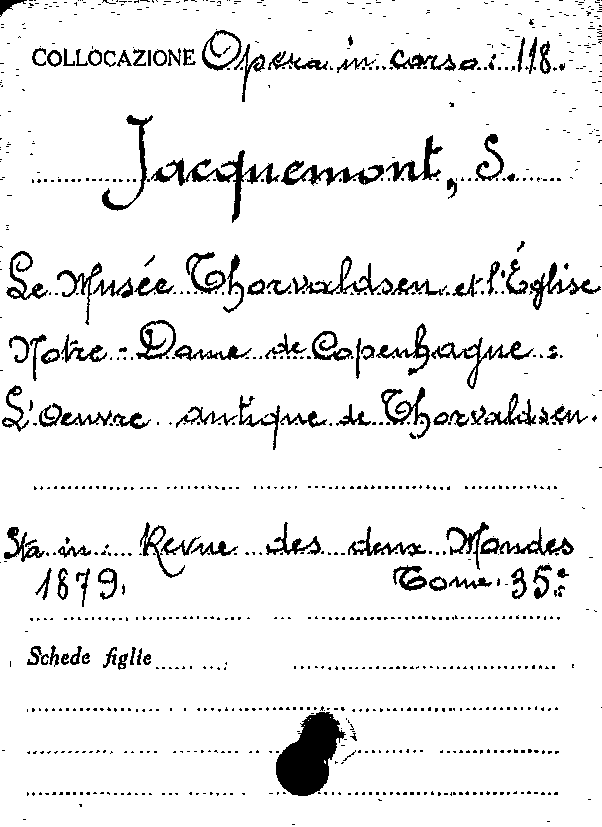 COLLOCAZIONE Opera in corso: 118.
Jacquemont, S.
Le Musée Thorvaldsen et l'Église
Notre-Dame de Copenhague:
L'Oeuvre antique de Thorvaldsen.
Sta in: Revue des deux Mondes
1879. Tome 35º:
Schede figlie